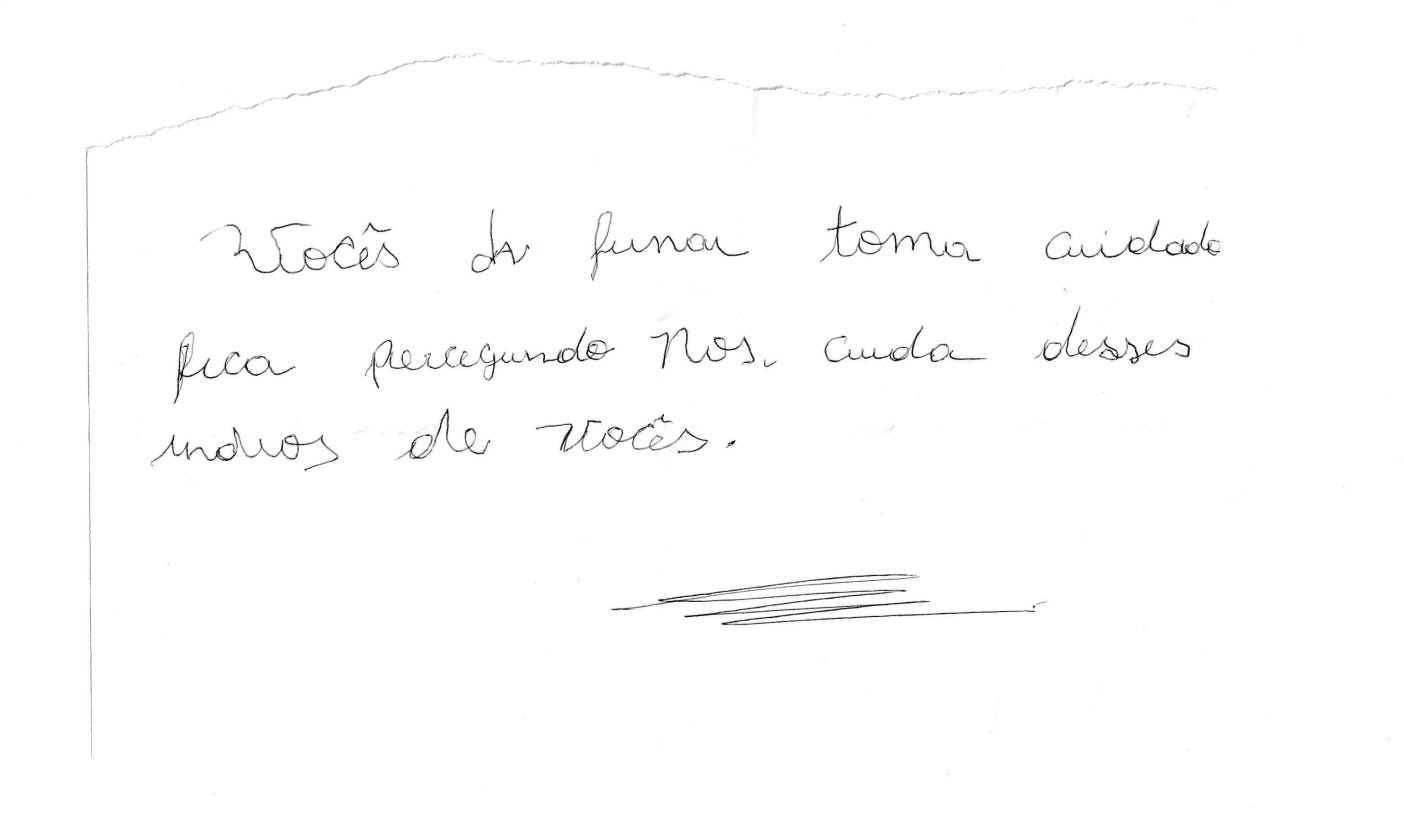 Vocês da funai toma cuidado
fica percegundo Nos. cuida desses
indios de vocês.